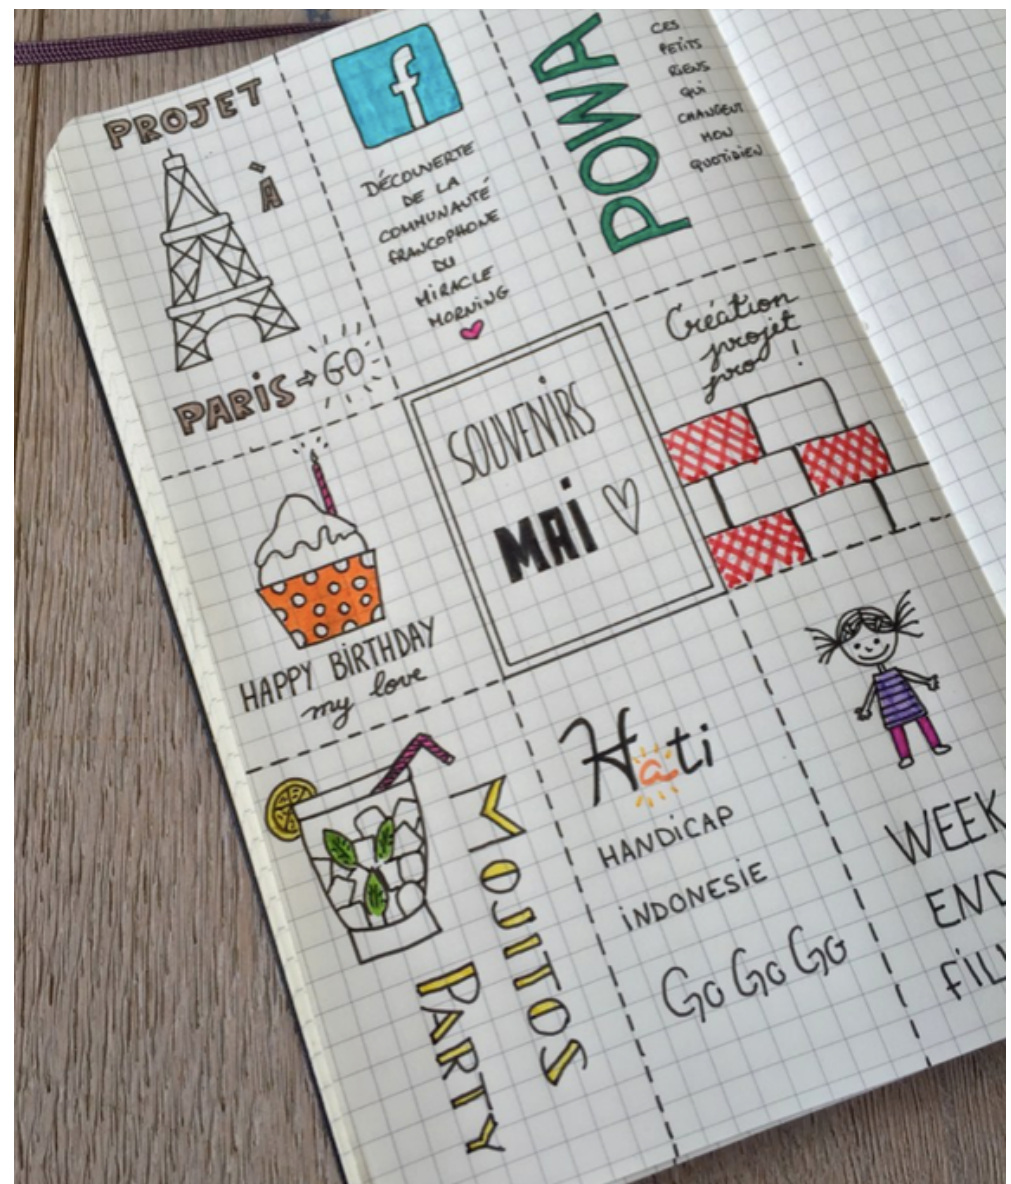 PROJET
À
PARIS → GO
f
DÉCOUVERTE
DE LA
COMMUNAUTÉ
FRANCOPHONE
DU
MIRACLE
MORNING
POWA
CES
PETITS
RIENS
QUI
CHANGENT
MON
QUOTIDIEN
HAPPY BIRTHDAY
my love
SOUVENIRS
MAI
Création
projet
pro !
MOJITOS
PARTY
Hati
HANDICAP
INDONESIE
Go Go Go
WEEK
END